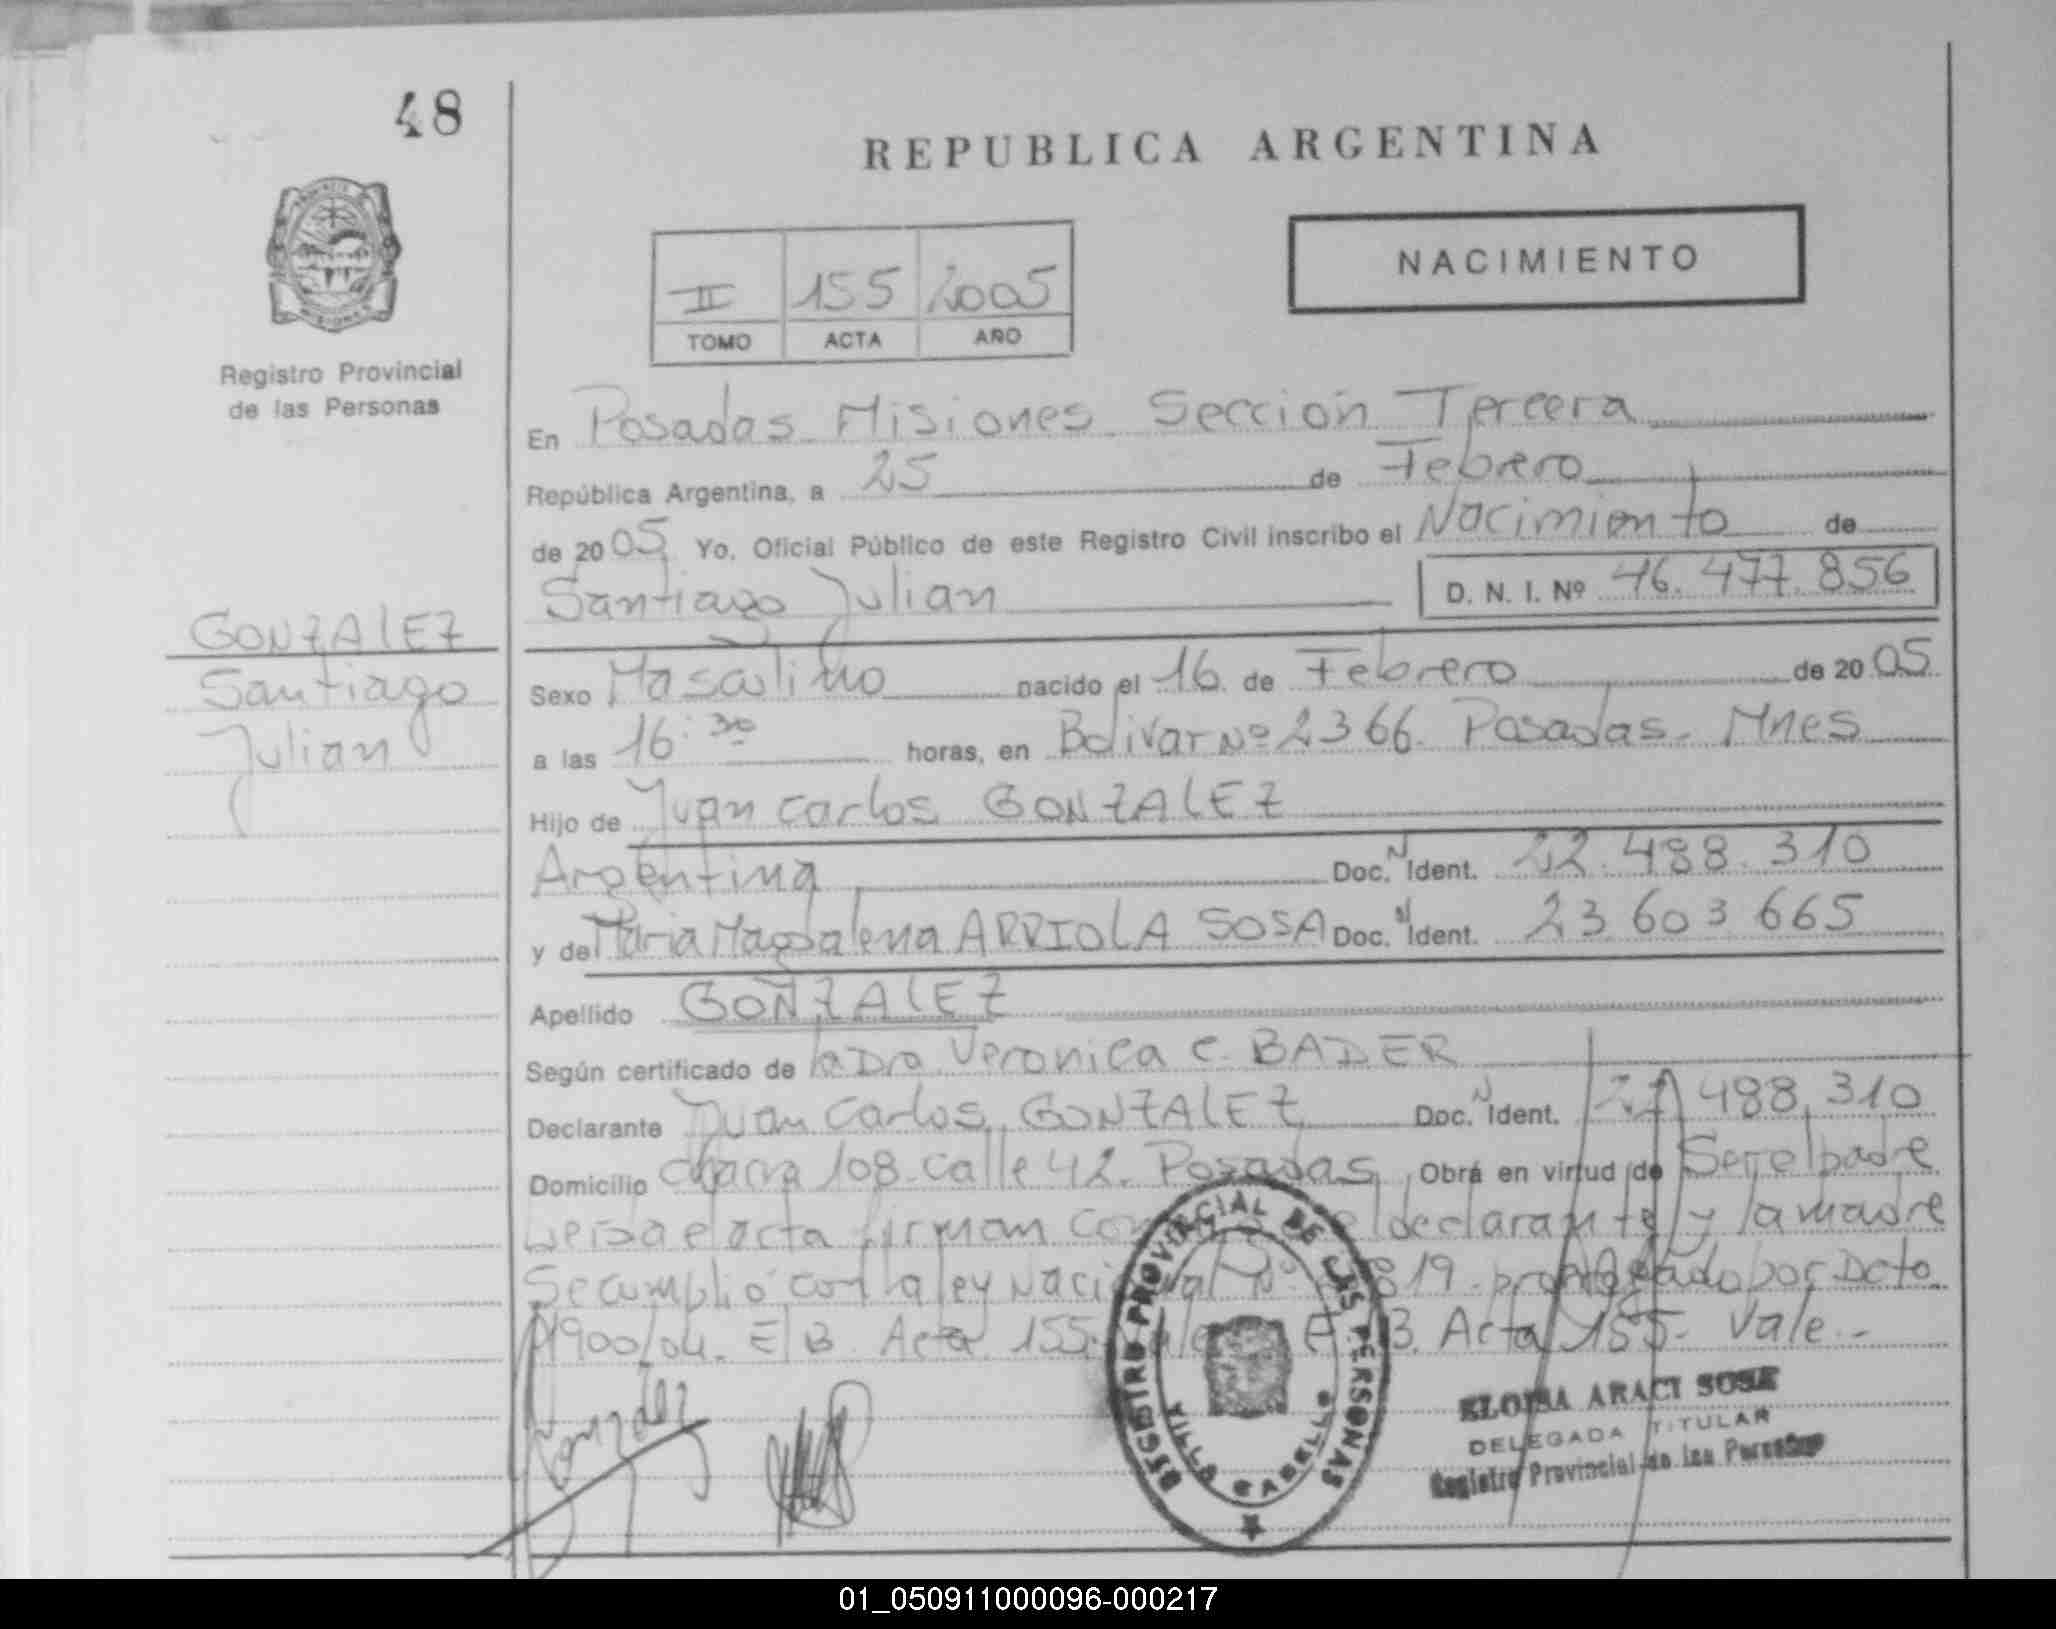 48
REPUBLICA ARGENTINA
NACIMIENTO
II 155 2005
TOMO ACTA AÑO
Registro Provincial
de las Personas
En Posadas Misiones Sección Tercera
República Argentina, a 25 de Febrero
de 2005 Yo, Oficial Público de este Registro Civil inscribo el Nacimiento de
Santiago Julian D. N. I. Nº 46.477.856
GONZALEZ
Santiago
Julian
Sexo Masculino nacido el 16 de Febrero de 2005
a las 16:30 horas, en Bolivar Nº 2366. Posadas. Mnes
Hijo de Juan Carlos GONZALEZ
Argentina Doc. N Ident. 22.488.310
y de Maria Magdalena ARRIOLA SOSA Doc. Ident. 23 603 665
Apellido GONZALEZ
Según certificado de la Dra Veronica C. BADER
Declarante Juan Carlos GONZALEZ Doc. N Ident. 22 488.310
Domicilio chacra 108 calle 42. Posadas Obra en virtud de Ser el padre
Leida el acta firman el declarante y la madre
Se cumplió con la ley Nacional Nº 819 prorrogado por Dcto
1900/04. E/B. Acta 155 E/B. Acta 155. Vale.-
Gonzalez
REGISTRO PROVINCIAL DE LAS PERSONAS
VILLA CABELLO
ELOISA ARACI SOSA
DELEGADA TITULAR
Registro Provincial de las Personas
01_050911000096-000217